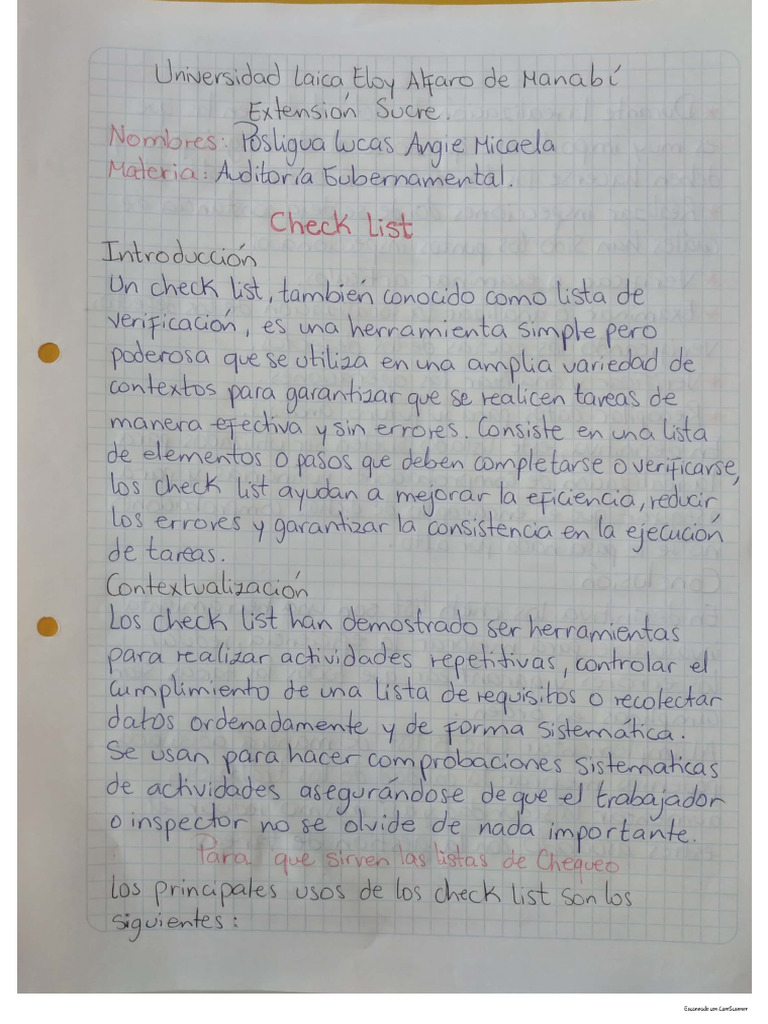 Universidad Laica Eloy Alfaro de Manabí
Extensión Sucre.
Nombres: Posligua Lucas Angie Micaela
Materia: Auditoría Gubernamental.
Check List
Introducción
Un check list, también conocido como lista de
verificación, es una herramienta simple pero
poderosa que se utiliza en una amplia variedad de
contextos para garantizar que se realicen tareas de
manera efectiva y sin errores. Consiste en una lista
de elementos o pasos que deben completarse o verificarse,
los check list ayudan a mejorar la eficiencia, reducir
los errores y garantizar la consistencia en la ejecución
de tareas.
Contextualización
Los check list han demostrado ser herramientas
para realizar actividades repetitivas, controlar el
cumplimiento de una lista de requisitos o recolectar
datos ordenadamente y de forma sistemática.
Se usan para hacer comprobaciones sistematicas
de actividades asegurándose de que el trabajador
o inspector no se olvide de nada importante.
Para que sirven las listas de Chequeo
Los principales usos de los check list son los
siguientes:
Escaneado con CamScanner